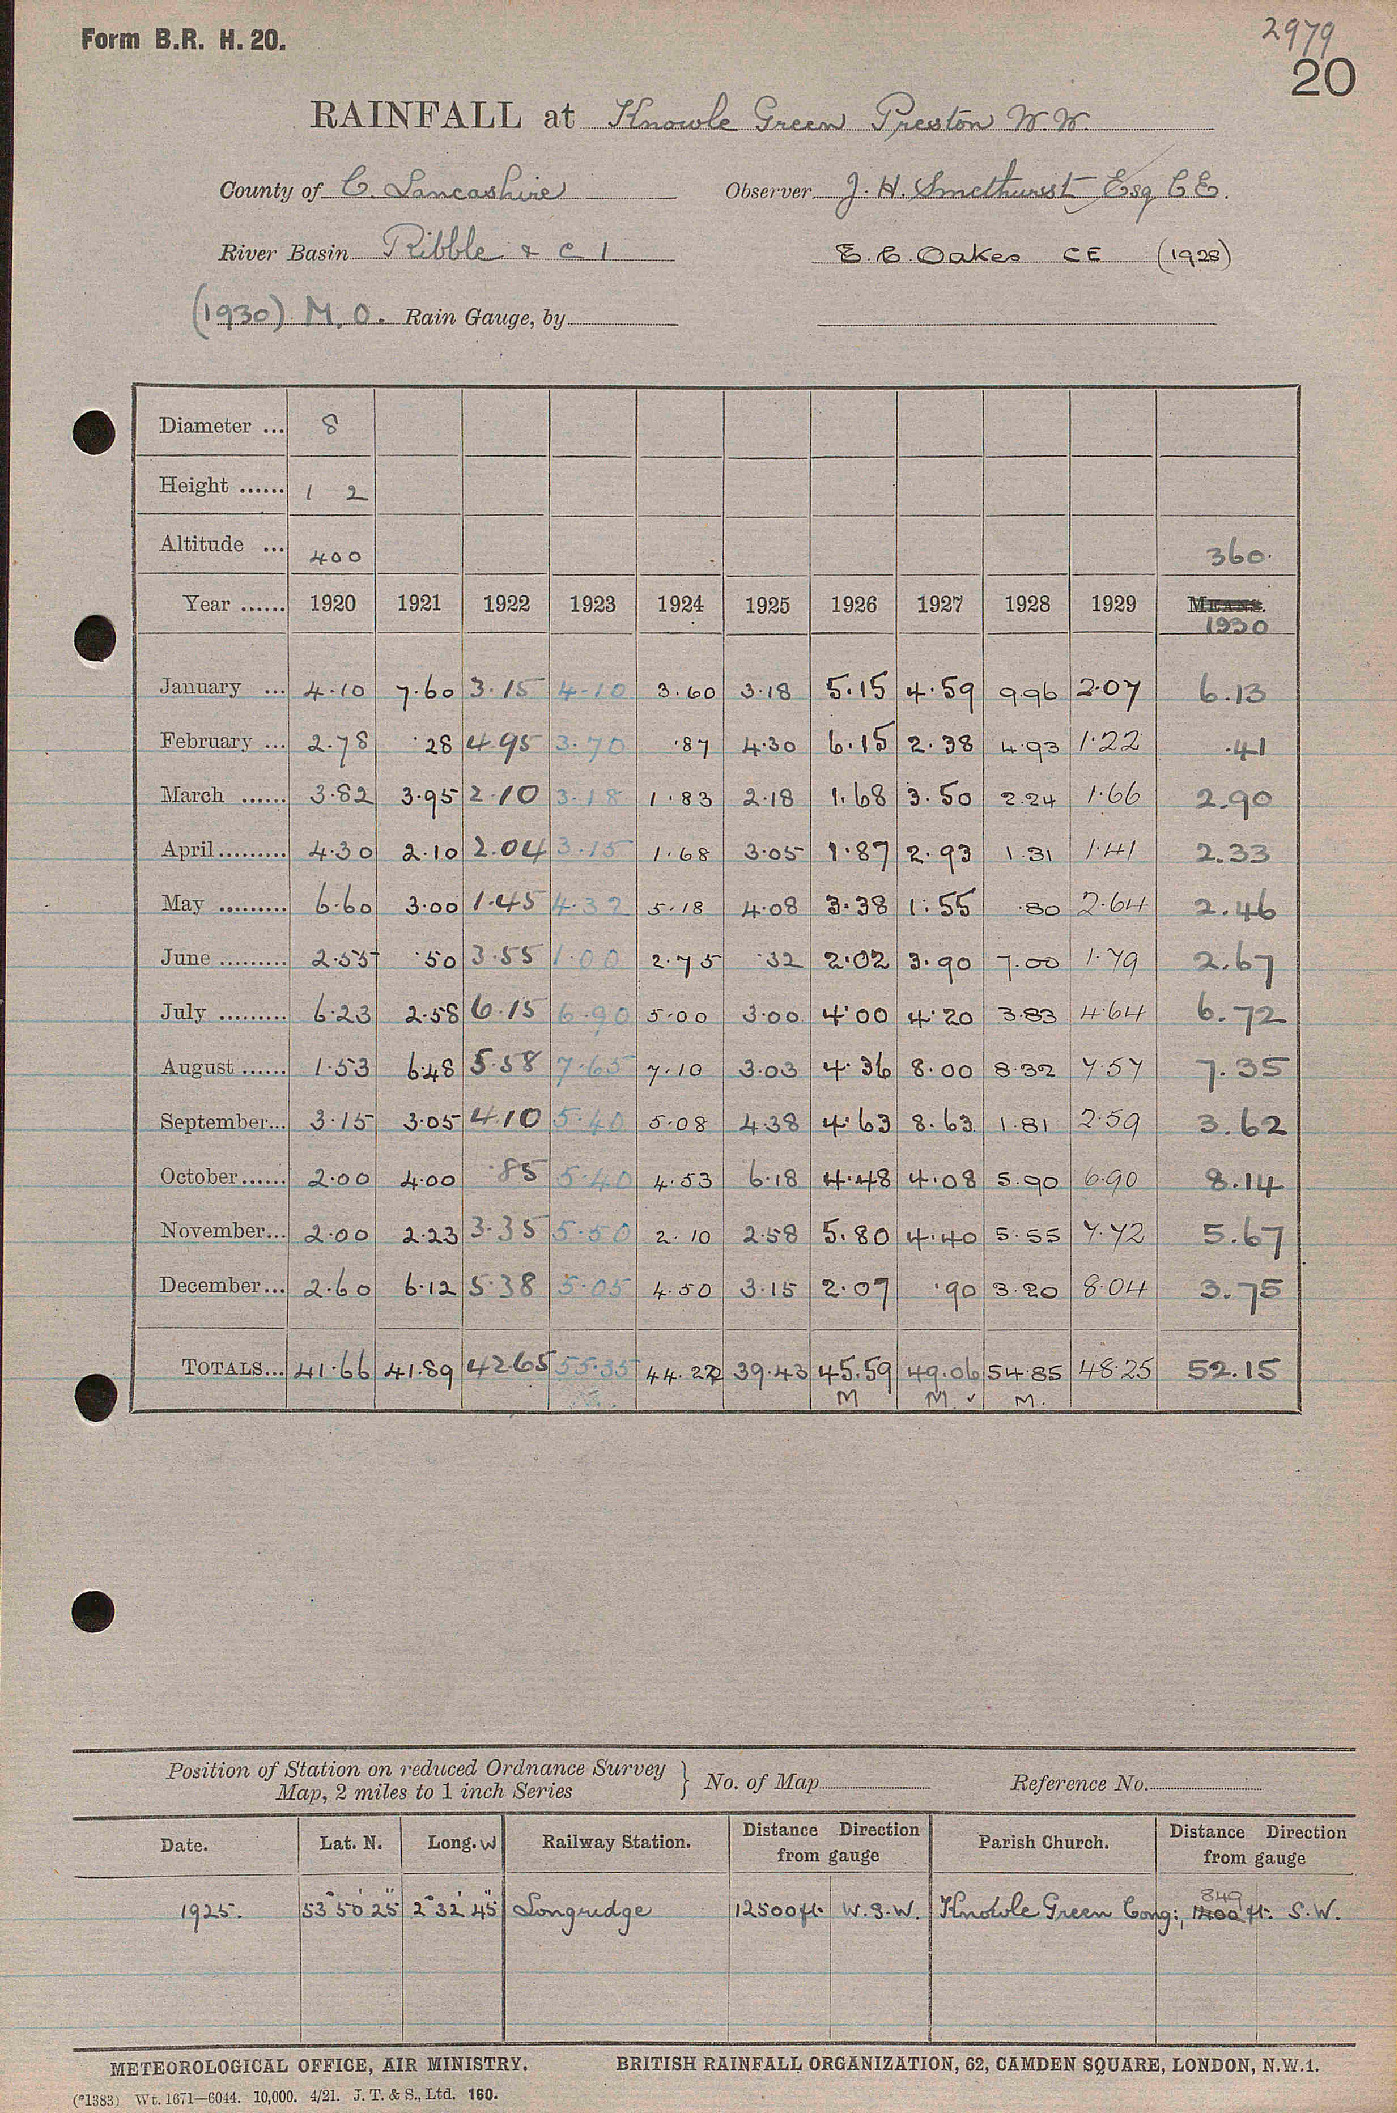 Form B.R. H. 20.
2979
20
RAINFALL at Knowle Green Preston W.W.
County of C. Lancashire Observer J. H. Smethurst Esq C.E.
River Basin Ribble & C 1 E. C. Oakes CE (1928)
(1930) M.O. Rain Gauge, by
Diameter ... 8
Height ...... 1 2
Altitude ... 400 360.
Year ...... 1920 1921 1922 1923 1924 1925 1926 1927 1928 1929 MEANS.
1930
January ... 4.10 7.60 3.15 4.10 3.60 3.18 5.15 4.59 9.96 2.07 6.13
February ... 2.78 .28 4.95 3.70 .87 4.30 6.15 2.38 4.93 1.22 .41
March ...... 3.82 3.95 2.10 3.18 1.83 2.18 1.68 3.50 2.24 1.66 2.90
April ......... 4.30 2.10 2.04 3.15 1.68 3.05 1.87 2.93 1.31 1.41 2.33
May ......... 6.60 3.00 1.45 4.32 5.18 4.08 3.38 1.55 .80 2.64 2.46
June ......... 2.55 .50 3.55 1.00 2.75 .32 2.02 3.90 7.00 1.79 2.67
July ......... 6.23 2.58 6.15 6.90 5.00 3.00 4.00 4.20 3.83 4.64 6.72
August ...... 1.53 6.48 5.58 7.65 7.10 3.03 4.36 8.00 8.32 7.57 7.35
September... 3.15 3.05 4.10 5.40 5.08 4.38 4.63 8.63 1.81 2.59 3.62
October...... 2.00 4.00 .85 5.40 4.53 6.18 4.48 4.08 5.90 6.90 8.14
November... 2.00 2.23 3.35 5.50 2.10 2.58 5.80 4.40 5.55 7.72 5.67
December... 2.60 6.12 5.38 5.05 4.50 3.15 2.07 .90 3.20 8.04 3.75
TOTALS... 41.66 41.89 42.65 55.35 44.22 39.43 45.59 49.06 54.85 48.25 52.15
M M ✓ M.
Position of Station on reduced Ordnance Survey
Map, 2 miles to 1 inch Series } No. of Map Reference No.
Date. Lat. N. Long. W Railway Station. Distance Direction from gauge Parish Church. Distance Direction from gauge
849
1925. 53° 50' 25" 2° 32' 45" Longridge 12500 ft. W.S.W. Knowle Green Cong:, 1200 ft. S.W.
METEOROLOGICAL OFFICE, AIR MINISTRY. BRITISH RAINFALL ORGANIZATION, 62, CAMDEN SQUARE, LONDON, N.W.1.
(*1383) Wt. 1671—6044. 10,000. 4/21. J. T. & S., Ltd. 160.